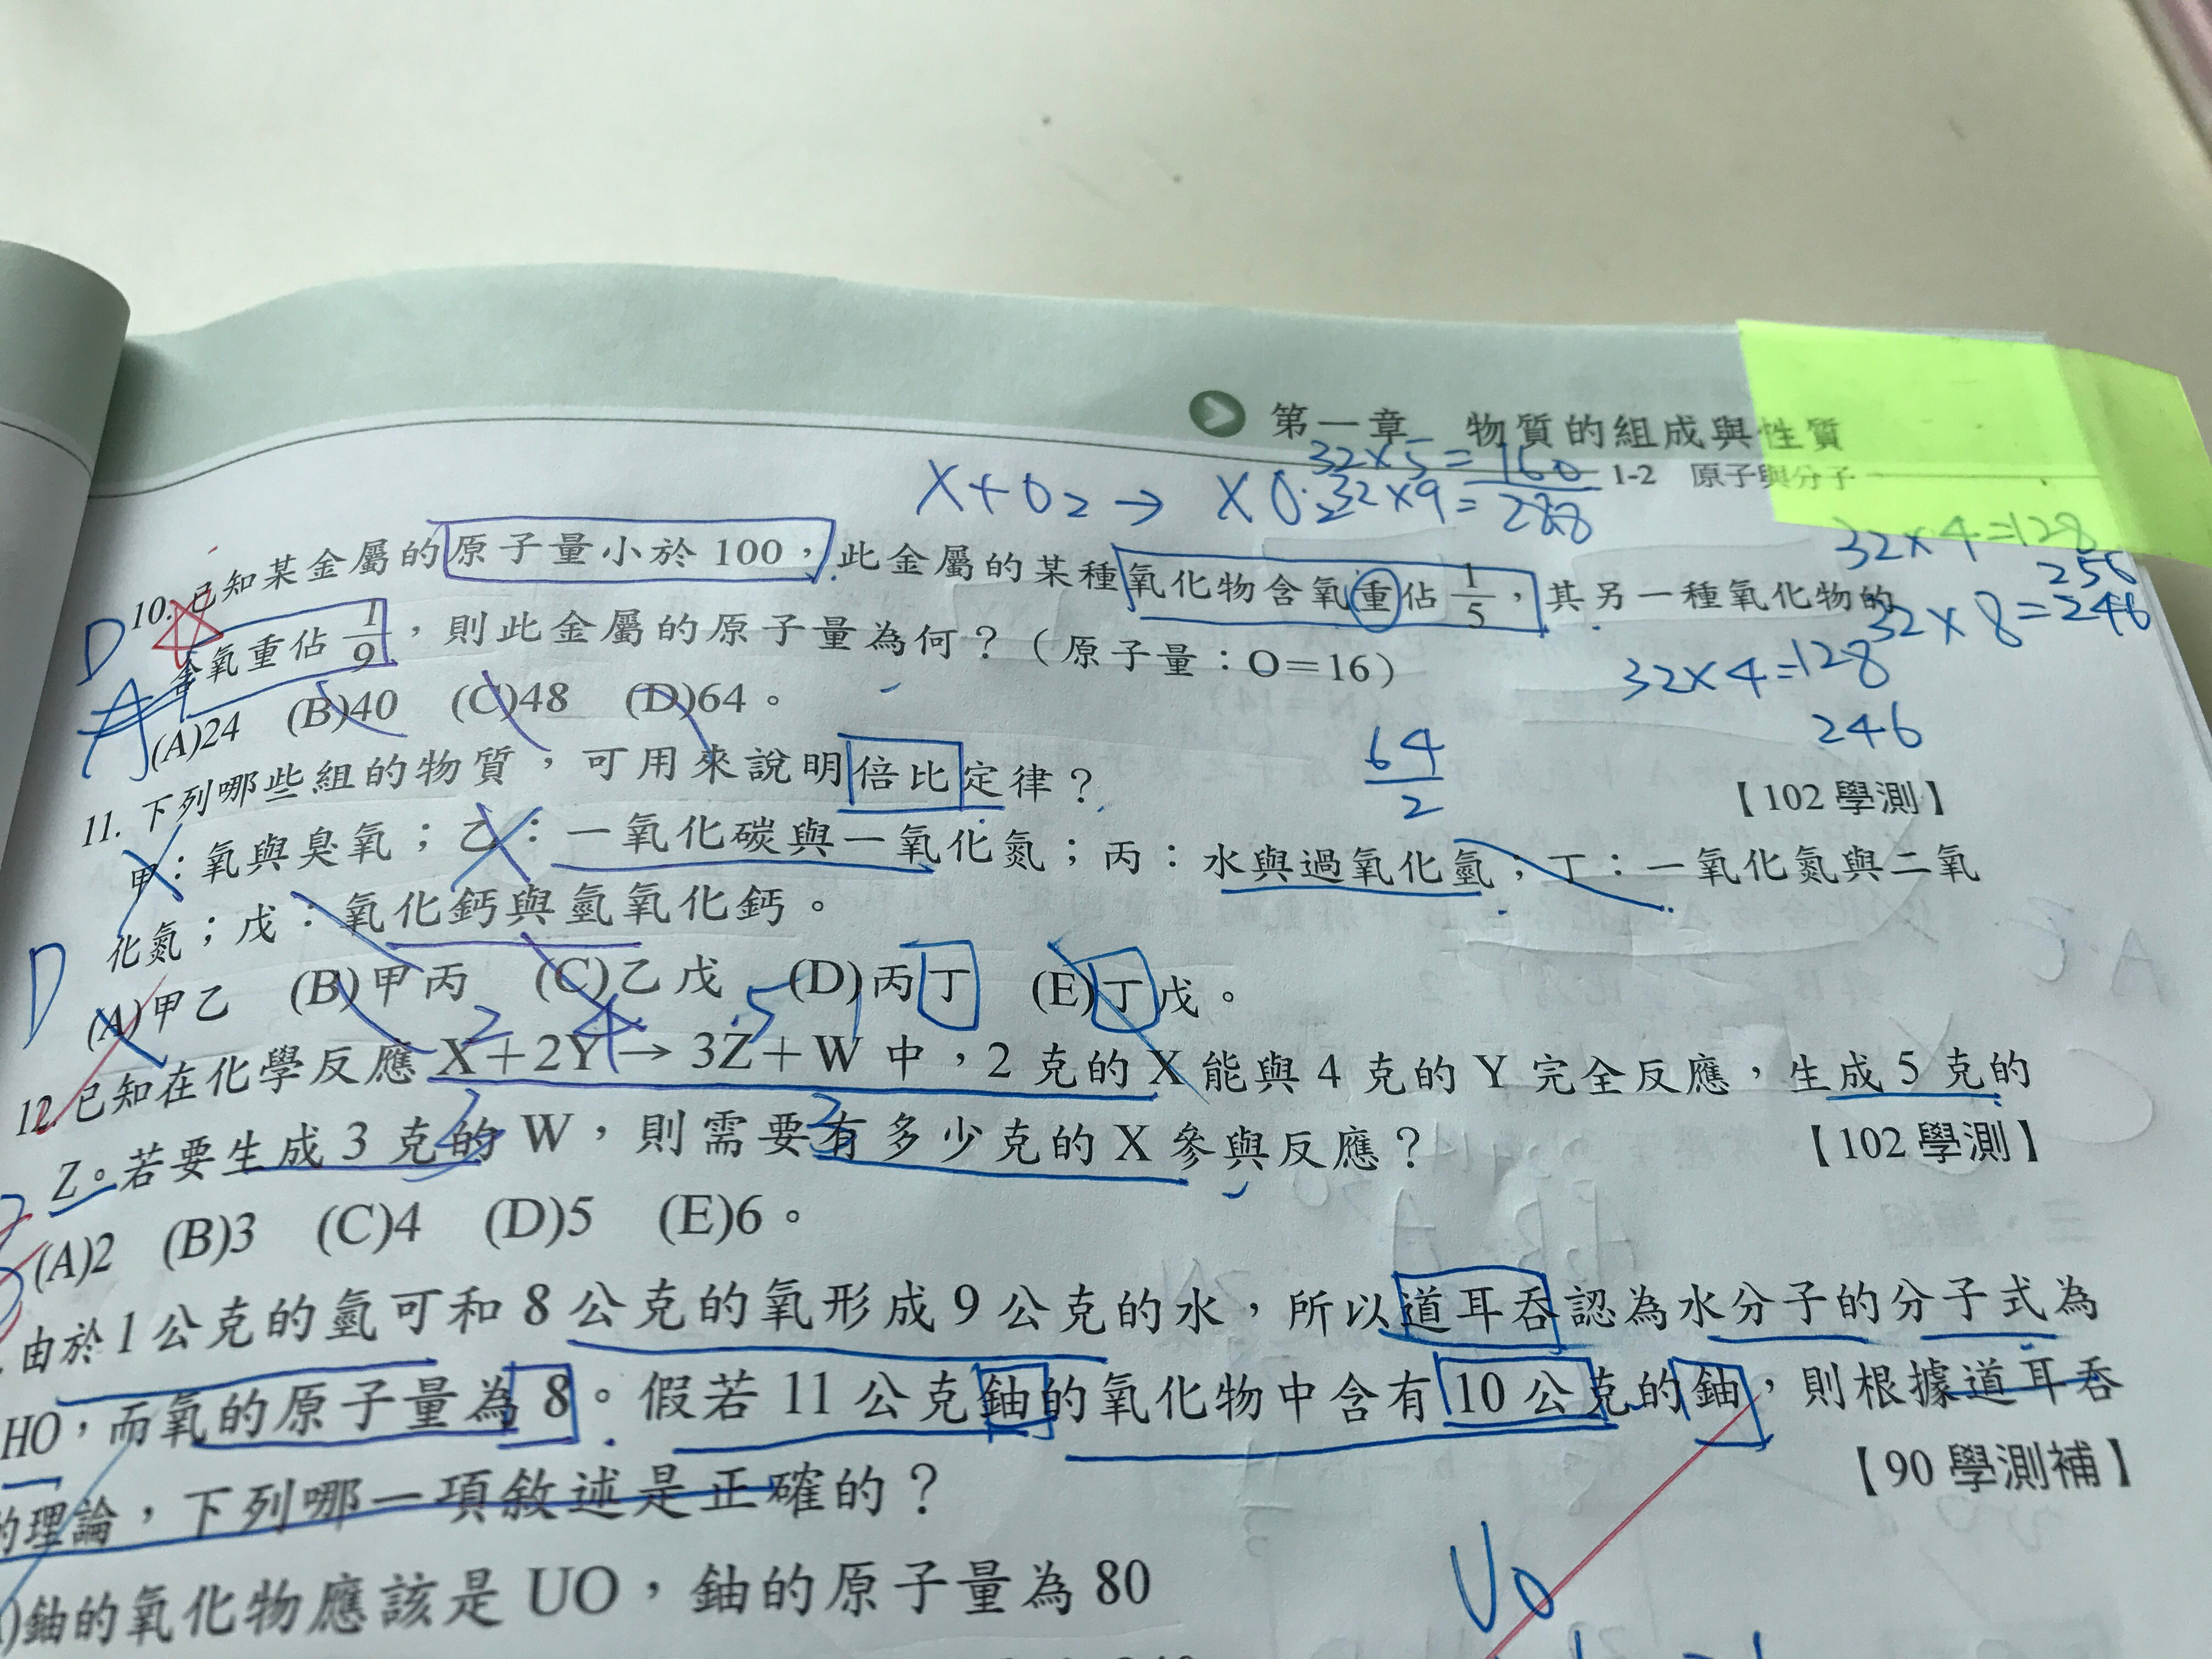 第一章 物質的組成與性質
32×5=160
X+O₂→XO₂ 32×9=288
1-2 原子與分子
32×4=128
256
32×8=246
10. 已知某金屬的原子量小於100，此金屬的某種氧化物含氧重佔1/5，其另一種氧化物的
D
含氧重佔1/9，則此金屬的原子量為何？（原子量：O=16）
32×4=128
246
A
(A)24 (B)40 (C)48 (D)64。
64/2
【102 學測】
11. 下列哪些組的物質，可用來說明倍比定律？
甲：氧與臭氧；乙：一氧化碳與一氧化氮；丙：水與過氧化氫；丁：一氧化氮與二氧
化氮；戊：氧化鈣與氫氧化鈣。
D
(A)甲乙 (B)甲丙 (C)乙戊 (D)丙丁 (E)丁戊。
2 4 5 1
12. 已知在化學反應 X+2Y→3Z+W 中，2 克的 X 能與 4 克的 Y 完全反應，生成 5 克的
Z。若要生成 3 克的 W，則需要有多少克的 X 參與反應？
【102 學測】
(A)2 (B)3 (C)4 (D)5 (E)6。
由於 1 公克的氫可和 8 公克的氧形成 9 公克的水，所以道耳吞認為水分子的分子式為
HO，而氧的原子量為 8。假若 11 公克鈾的氧化物中含有 10 公克的鈾，則根據道耳吞
的理論，下列哪一項敘述是正確的？
【90 學測補】
)鈾的氧化物應該是 UO，鈾的原子量為 80
UO